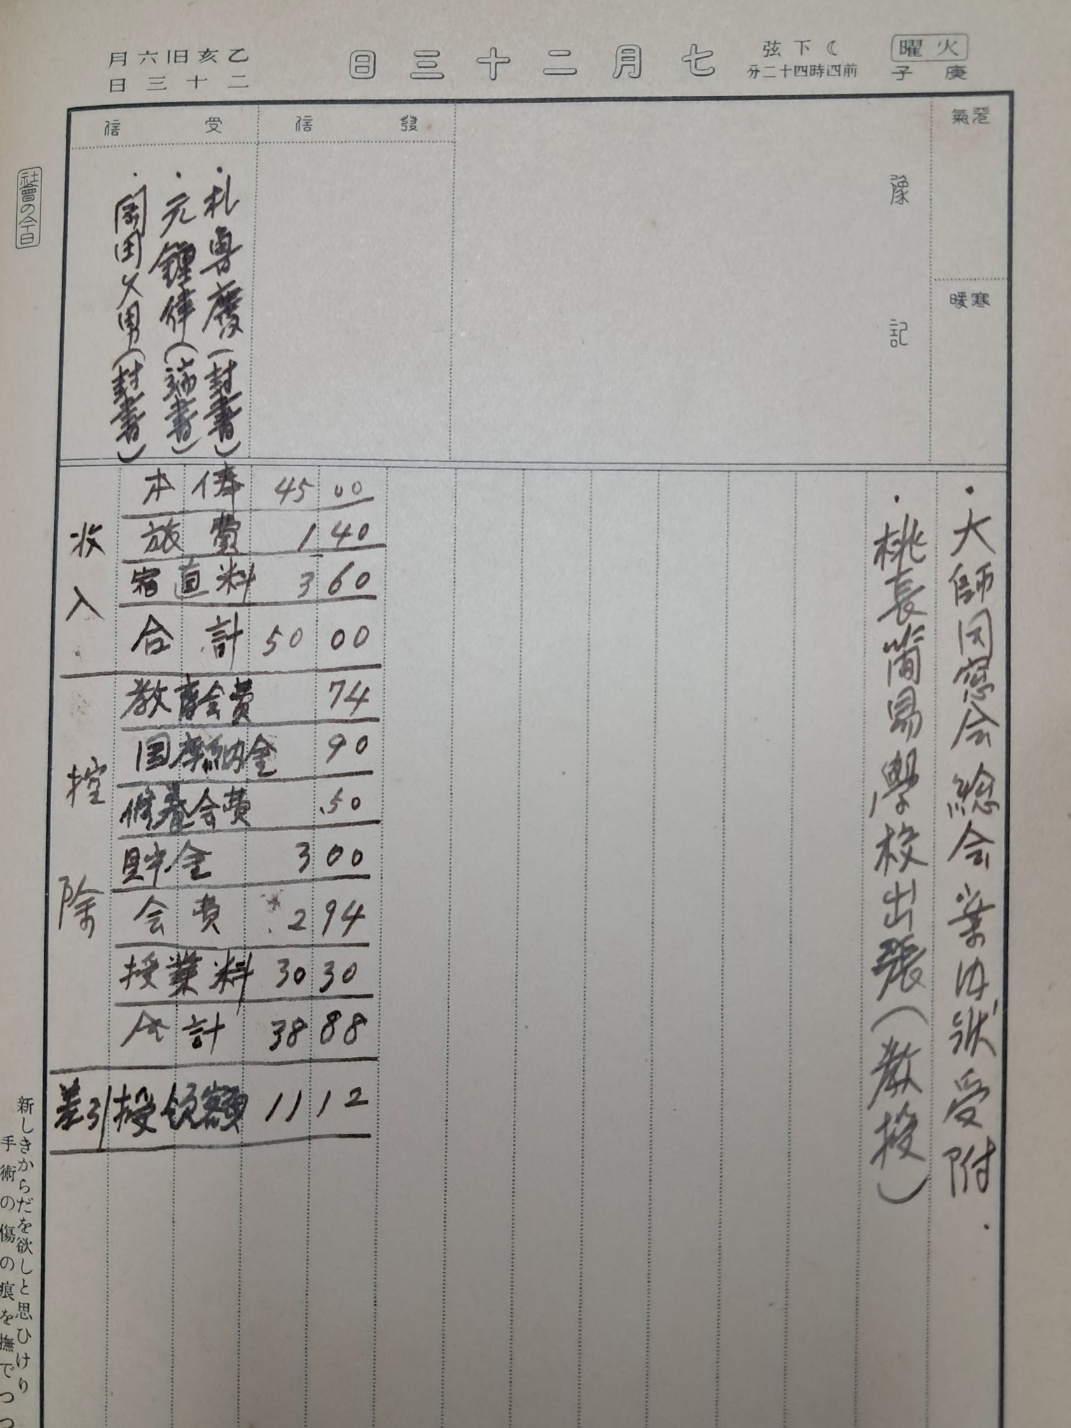 火曜
庚子
☾下弦
前四時四十二分
七月二十三日
乙亥旧六月
二十三日
天氣
寒暖
豫記
發信
受信
・札
・元鍾偉(端書)
・岡田久男(封書)
社會の今日
・大師同窓会総会案内状受附.
・桃長簡易學校出張(教授)
収入
本俸 45 00
旅費 1 40
宿直料 3 60
合計 50 00
控除
教育会費 74
国庫納金 90
修養会費 .50
貯金 3 00
会費 2 94
授業料 30 30
合計 38 88
差引授領額 11 12
新しきからだを欲しと思ひけり
手術の傷の痕を撫でつつ